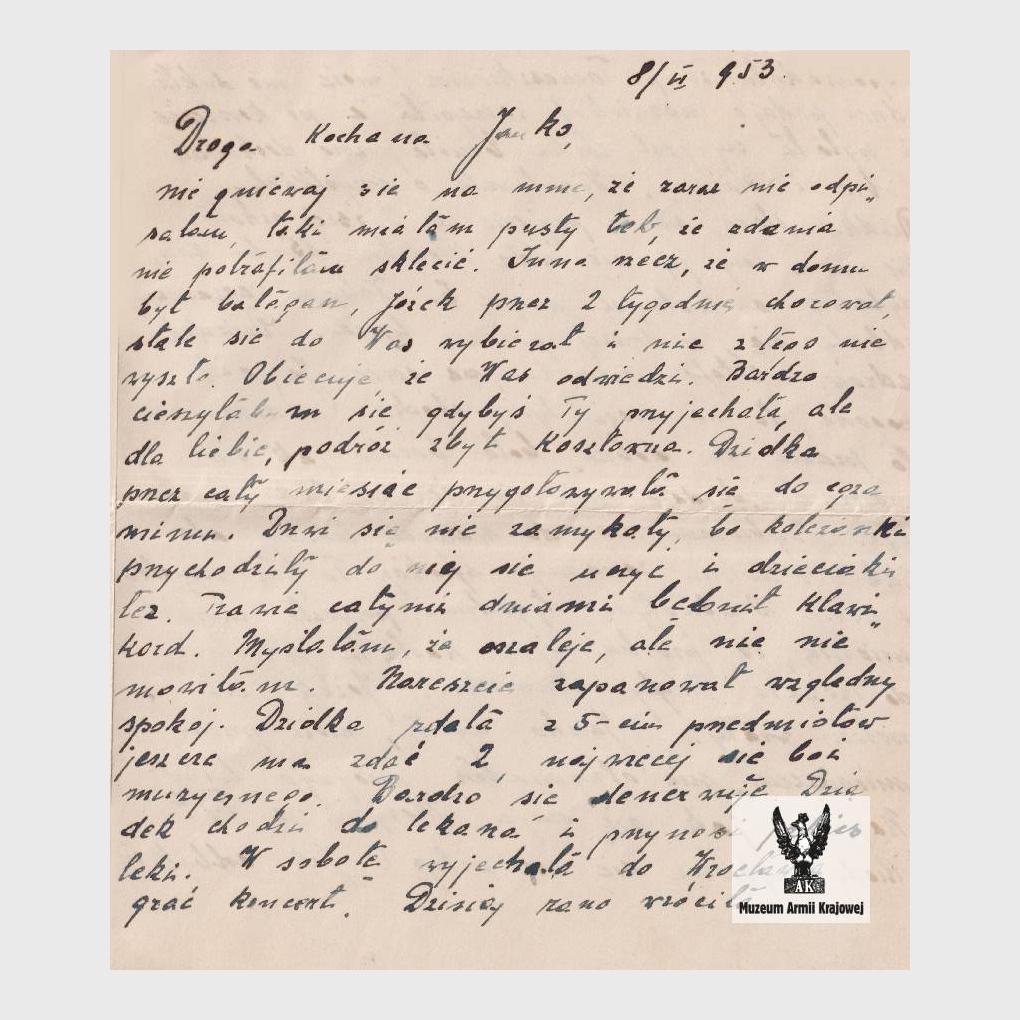 8/II 953.
Droga Kochana Janko,
nie gniewaj sie na mnie, że zaraz nie odpi„
sałam, taki miałam pusty łeb, że zdania
nie potrafiłam sklecić. Inna rzecz, że w domu
był bałagan, Józek przez 2 tygodnie chorował,
stale sie do Was wybierał i nic z tego nie
wyszło. Obiecuje, że Was odwiedzi. Bardzo
cieszyłabym sie gdybyś Ty przyjechała, ale
dla Ciebie, podróż zbyt kosztowna. Dzidka
przez cały miesiąc przygotowywała sie do egza
minu. Drzwi sie nie zamykały, bo koleżanki
przychodziły do niej sie uczyć i dzieciaki
też. Prawie całymi dniami bębnił klawi„
kord. Myślałam, że oszaleje, ale nic nie
mówiłam. Nareszcie zapanował względny
spokój. Dzidka zdała z 5-ciu przedmiotów
jeszcze ma zdać 2, najwięcej sie boi
muzycznego. Bardzo sie denerwuje. Dzia
dek chodzi do lekarza i przynosi
leki. W sobotę wyjechała do
grać koncert. Dzisiaj rano wróciła
AK
Muzeum Armii Krajowej